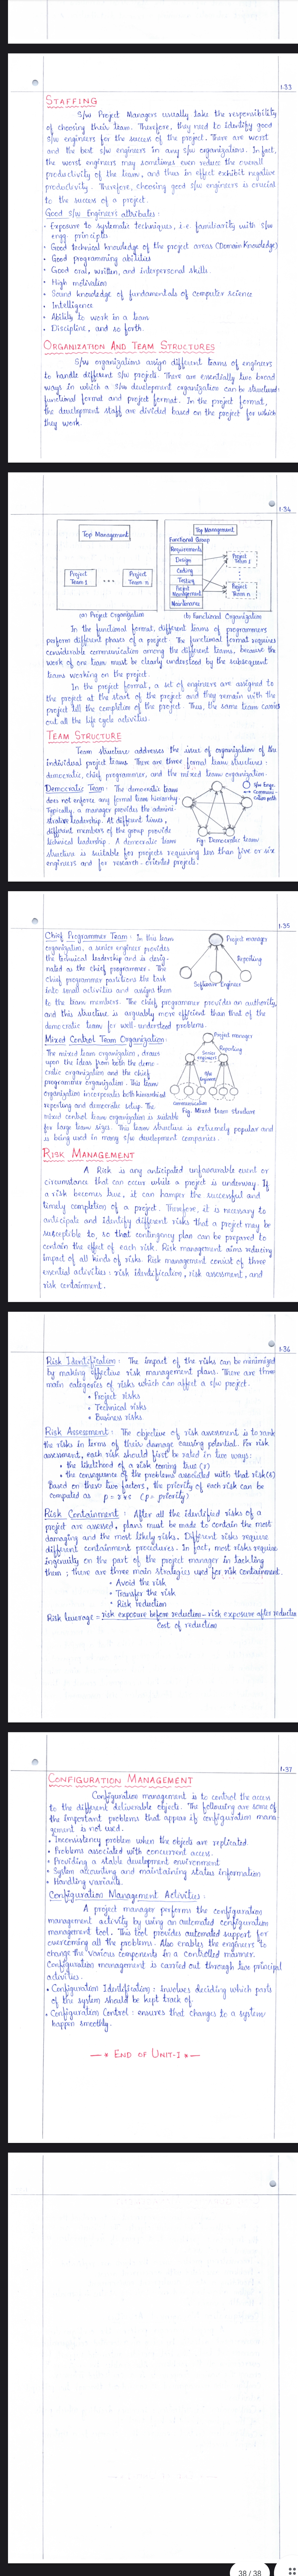 1·33
STAFFING
S/w Project Managers usually take the responsibility
of choosing their team. Therefore, they need to identify good
s/w engineers for the success of the project. There are worst
and the best s/w engineers in any s/w organizations. In fact,
the worst engineers may sometimes even reduce the overall
productivity of the team, and thus in effect exhibit negative
productivity. Therefore, choosing good s/w engineers is crucial
to the success of a project.
Good S/w Engineers attributes:
• Exposure to systematic techniques, i.e. familiarity with s/w
engg principles
• Good technical knowledge of the project areas (Domain Knowledge)
• Good programming abilities
• Good oral, written, and interpersonal skills.
• High motivation
• Sound knowledge of fundamentals of computer science
• Intelligence
• Ability to work in a team
• Discipline, and so forth.
ORGANIZATION AND TEAM STRUCTURES
S/w organizations assign different teams of engineers
to handle different s/w project. There are essentially two broad
ways in which a s/w development organization can be structured:
functional format and project format. In the project format,
the development staff are divided based on the project for which
they work.
1·34
Top Management
Project Team 1
Project Team n
(a) Project Organization
Top Management
Functional Group
Requirements
Design
Coding
Testing
Project Management
Maintenance
Project Team 1
Project Team n
(b) Functional Organization
In the functional format, different teams of programmers
perform different phases of a project. The functional format requires
considerable communication among the different teams, because the
work of one team must be clearly understood by the subsequent
teams working on the project.
In the project format, a set of engineers are assigned to
the project at the start of the project and they remain with the
project till the completion of the project. Thus, the same team carries
out all the life cycle activities.
TEAM STRUCTURE
Team structure addresses the issue of organization of the
individual project teams. There are three formal team structures:
democratic, chief programmer, and the mixed team organization.
Democratic Team: The democratic team
does not enforce any formal team hierarchy.
Typically, a manager provides the admini-
strative leadership. At different times,
different members of the group provide
technical leadership. A democratic team
structure is suitable for projects requiring less than five or six
engineers and for research-oriented projects.
S/w Engg.
Communi-
cation path
Fig: Democratic team
1·35
Chief Programmer Team: In this team
organization, a senior engineer provides
the technical leadership and is desig-
nated as the chief programmer. The
chief programmer partitions the task
into small activities and assigns them
to the team members. The chief programmer provides an authority,
and this structure is arguably more efficient than that of the
democratic team for well-understood problems.
Project manager
Reporting
Software Engineer
Mixed Control Team Organization:
The mixed team organization, draws
upon the ideas from both the demo-
cratic organization and the chief
programmer organization. This team
organization incorporates both hierarchical
reporting and democratic setup. The
mixed control team organization is suitable
for large team sizes. This team structure is extremely popular and
is being used in many s/w development companies.
Project manager
Reporting
Senior engineers
S/w Engineers
Communication
Fig. Mixed team structure
RISK MANAGEMENT
A Risk is any anticipated unfavourable event or
circumstance that can occur while a project is underway. If
a risk becomes true, it can hamper the successful and
timely completion of a project. Therefore, it is necessary to
anticipate and identify different risks that a project may be
susceptible to, so that contingency plan can be prepared to
contain the effect of each risk. Risk management aims reducing
impact of all kinds of risks. Risk management consist of three
essential activities: risk identification, risk assessment, and
risk containment.
1·36
Risk Identification: The impact of the risks can be minimized
by making effective risk management plans. There are three
main categories of risks which can affect a s/w project.
• Project risks
• Technical risks
• Business risks
Risk Assessment: The objective of risk assessment is to rank
the risks in terms of their damage causing potential. For risk
assessment, each risk should first be rated in two ways:
• the likelihood of a risk coming true (r)
• the consequence of the problems associated with that risk (s)
Based on these two factors, the priority of each risk can be
computed as p = r × s (p = priority)
Risk Containment: After all the identified risks of a
project are assessed, plans must be made to contain the most
damaging and the most likely risks. Different risks require
different containment procedures. In fact, most risks require
ingenuity on the part of the project manager in tackling
them; there are three main strategies used for risk containment.
• Avoid the risk
• Transfer the risk
• Risk reduction
Risk leverage = risk exposure before reduction - risk exposure after reduction
Cost of reduction
1·37
CONFIGURATION MANAGEMENT
Configuration management is to control the access
to the different deliverable objects. The following are some of
the important problems that appear if configuration mana-
gement is not used.
• Inconsistency problem when the objects are replicated.
• Problems associated with concurrent access.
• Providing a stable development environment
• System accounting and maintaining status information
• Handling variants.
Configuration Management Activities:
A project manager performs the configuration
management activity by using an automated configuration
management tool. This tool provides automated support for
overcoming all the problems. Also enables the engineers to
change the various components in a controlled manner.
Configuration management is carried out through two principal
activities:
• Configuration Identification: involves deciding which parts
of the system should be kept track of.
• Configuration Control: ensures that changes to a system
happen smoothly.
—* END OF UNIT-I *—
38 / 38